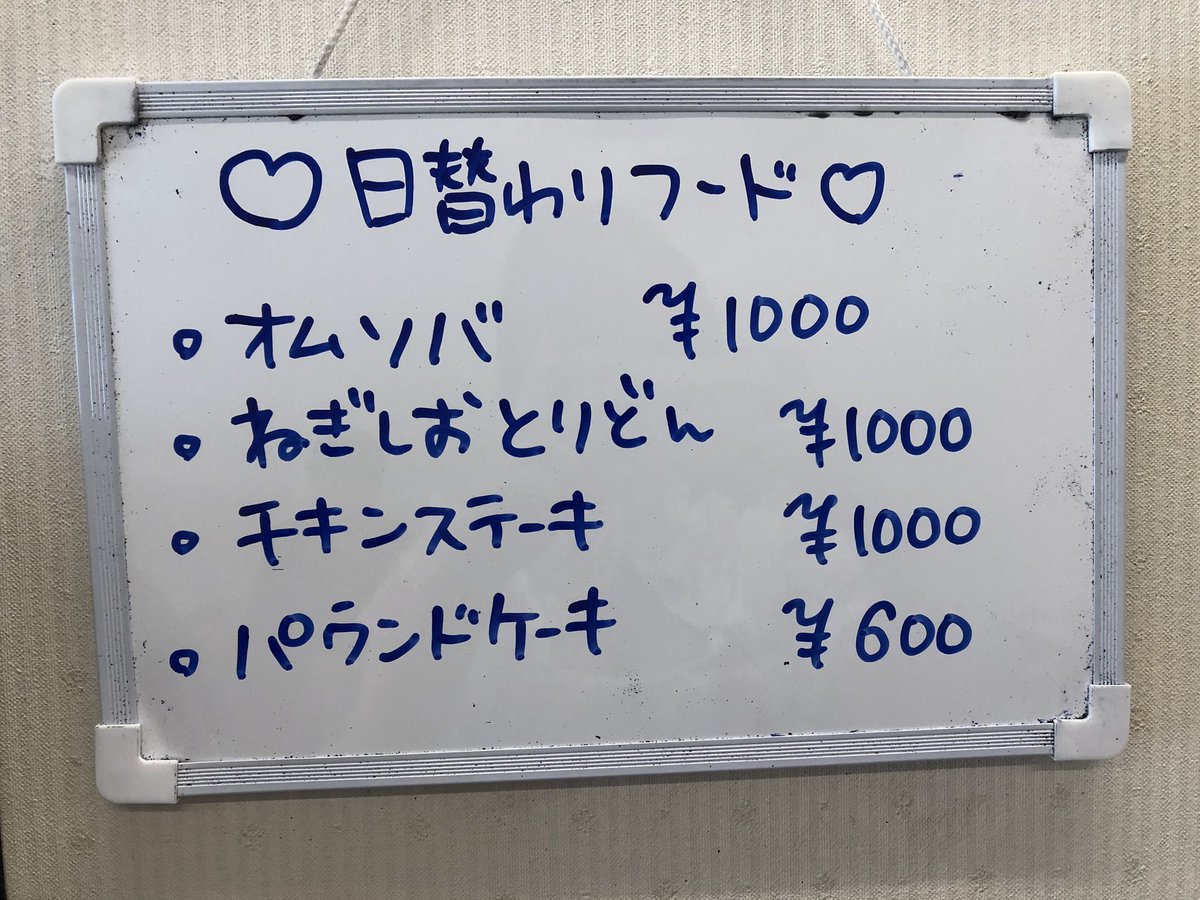 ♡日替わりフード♡
。オムソバ ¥1000
。ねぎしおとりどん ¥1000
。チキンステーキ ¥1000
。パウンドケーキ ¥600